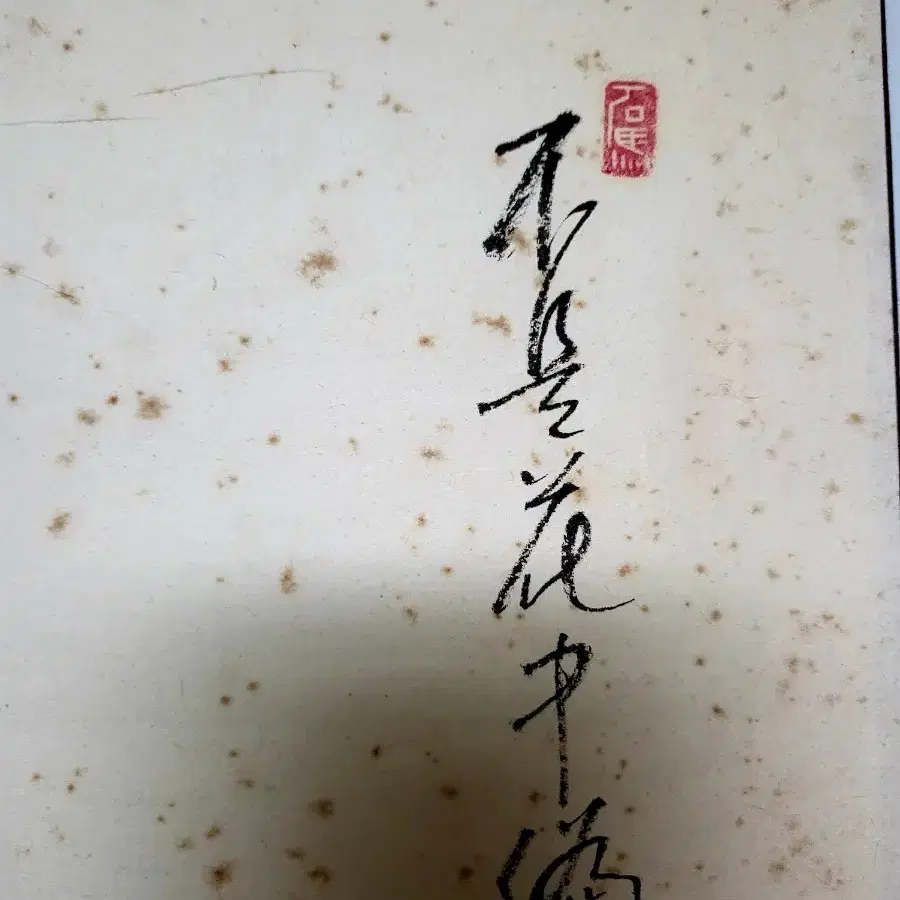 石馬
不是花中偏